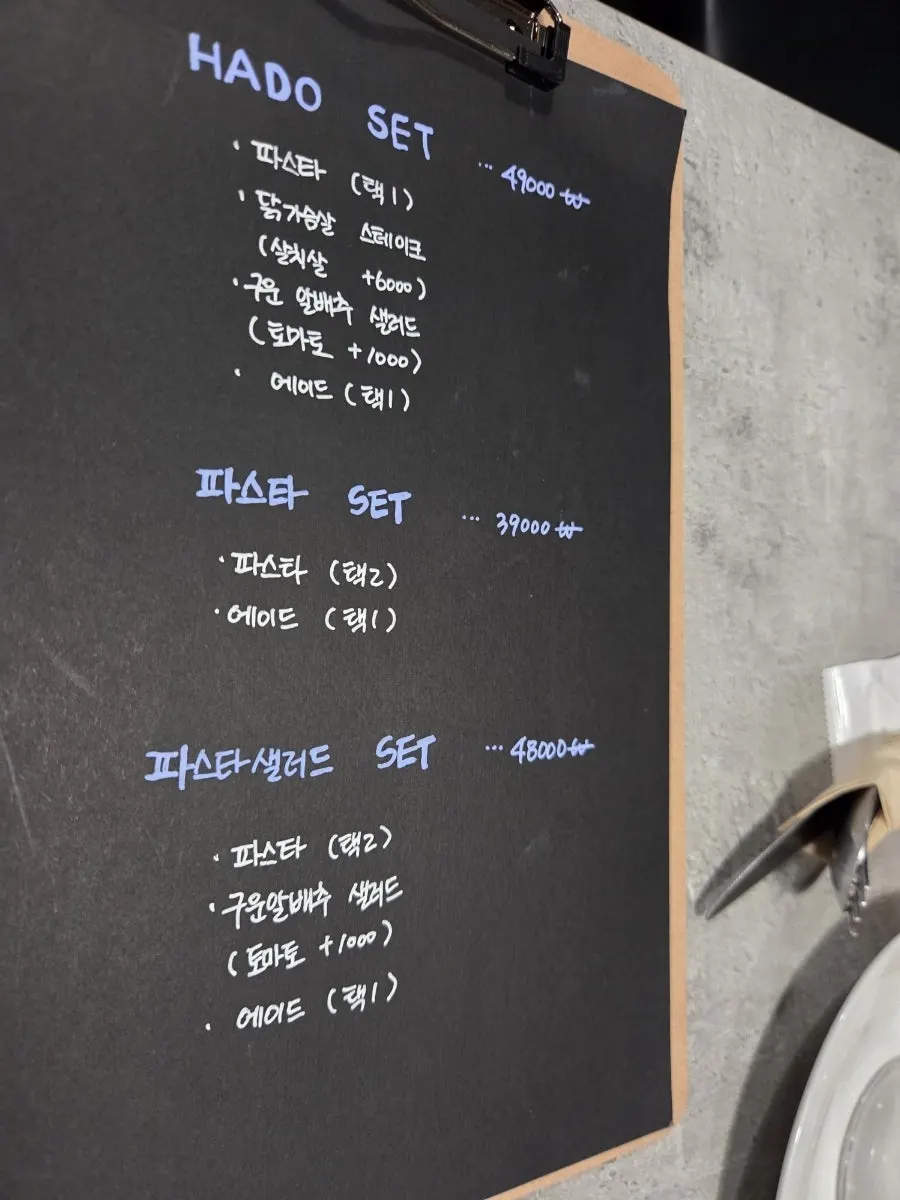 HADO SET ... 49000 ₩
· 파스타 (택1)
· 닭가슴살 스테이크
(살치살 +6000)
· 구운 알배추 샐러드
(토마토 +1000)
· 에이드 (택1)
파스타 SET ... 39000 ₩
· 파스타 (택2)
· 에이드 (택1)
파스타샐러드 SET ... 48000 ₩
· 파스타 (택2)
· 구운알배추 샐러드
(토마토 +1000)
· 에이드 (택1)